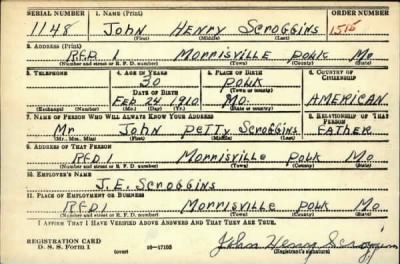 SERIAL NUMBER 1. NAME (Print) ORDER NUMBER
1148 John Henry Scroggins 1515
(First) (Middle) (Last)
2. ADDRESS (Print)
RFD 1 Morrisville Polk Mo
(Number and street or R. F. D. number) (Town) (County) (State)
3. TELEPHONE 4. AGE IN YEARS 5. PLACE OF BIRTH 6. COUNTRY OF CITIZENSHIP
30 Polk
DATE OF BIRTH (Town or county)
Feb 24 1910 Mo. American
(Exchange) (Number) (Mo.) (Day) (Yr.) (State or country)
7. NAME OF PERSON WHO WILL ALWAYS KNOW YOUR ADDRESS 8. RELATIONSHIP OF THAT PERSON
Mr John Petty Scroggins Father
(Mr., Mrs., Miss) (First) (Middle) (Last)
9. ADDRESS OF THAT PERSON
RFD1 Morrisville Polk Mo
(Number and street or R. F. D. number) (Town) (County) (State)
10. EMPLOYER'S NAME
J.E. Scroggins
11. PLACE OF EMPLOYMENT OR BUSINESS
RFD1 Morrisville Polk Mo
(Number and street or R. F. D. number) (Town) (County) (State)
I AFFIRM THAT I HAVE VERIFIED ABOVE ANSWERS AND THAT THEY ARE TRUE.
REGISTRATION CARD John Henry Scroggins
D. S. S. Form 1 (over) 16-17105 (Registrant's signature)